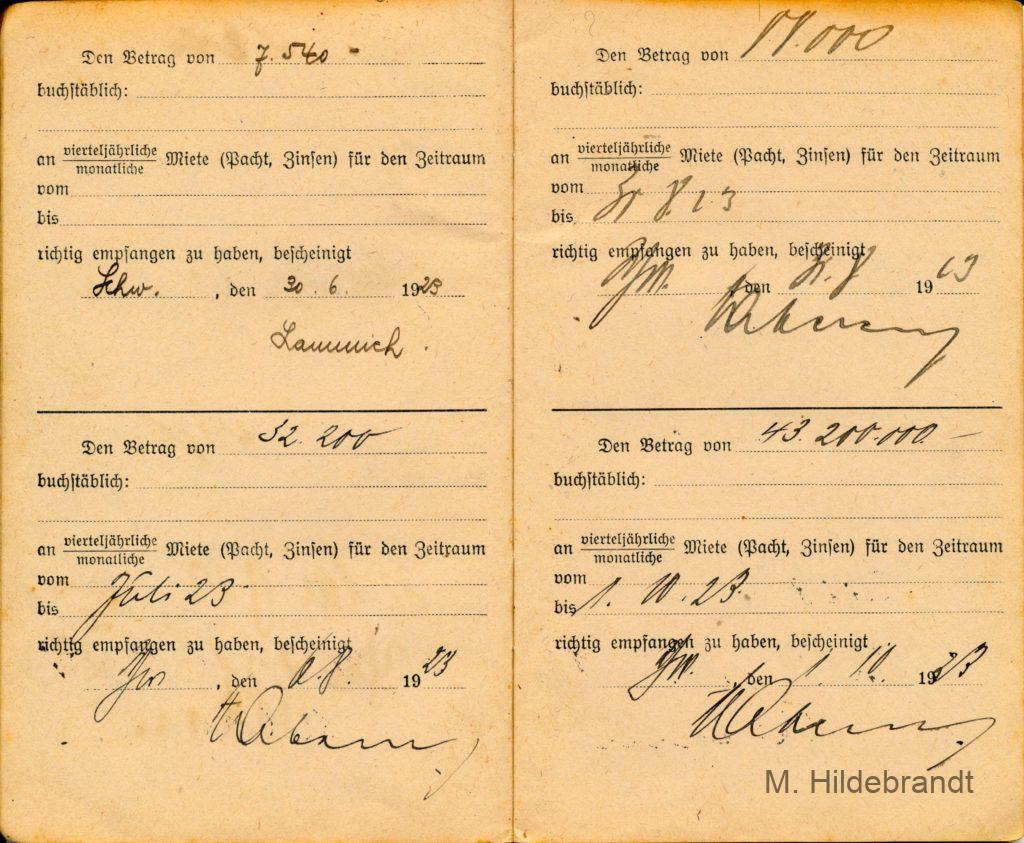 Den Betrag von 7.540 -
buchstäblich:
an vierteljährliche
monatliche Miete (Pacht, Zinsen) für den Zeitraum
vom
bis
richtig empfangen zu haben, bescheinigt
Schw. , den 30. 6. 1923
Lammich.
Den Betrag von 32.200
buchstäblich:
an vierteljährliche
monatliche Miete (Pacht, Zinsen) für den Zeitraum
vom
bis Juli 23
richtig empfangen zu haben, bescheinigt
, den 1923
Den Betrag von
buchstäblich:
an vierteljährliche
monatliche Miete (Pacht, Zinsen) für den Zeitraum
vom
bis
richtig empfangen zu haben, bescheinigt
, den 19
Den Betrag von 43.200.000 -
buchstäblich:
an vierteljährliche
monatliche Miete (Pacht, Zinsen) für den Zeitraum
vom
bis 1. 10. 23.
richtig empfangen zu haben, bescheinigt
den 1. 10 1923
M. Hildebrandt